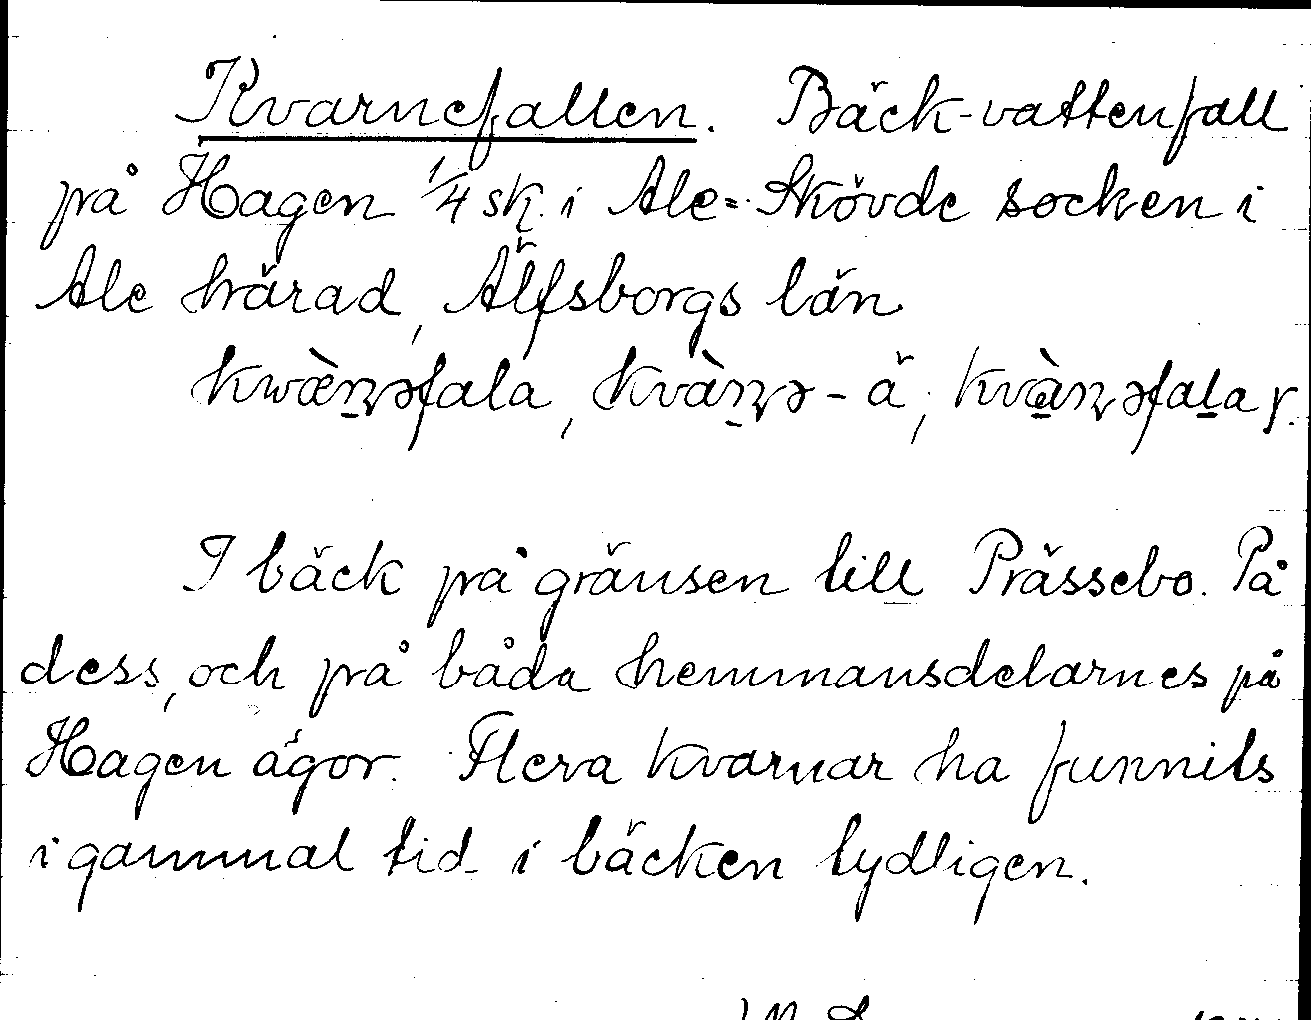 Kvarnefallen. Bäck-vattenfall
på Hagen 1/4 sk. i Ale=Skövde socken i
Ale härad, Älfsborgs län
I bäck på gränsen till Prässebo. På
dess, och på båda hemmansdelarnes på
Hagen ägor. Flera kvarnar ha funnits
i gammal tid i bäcken tydligen.